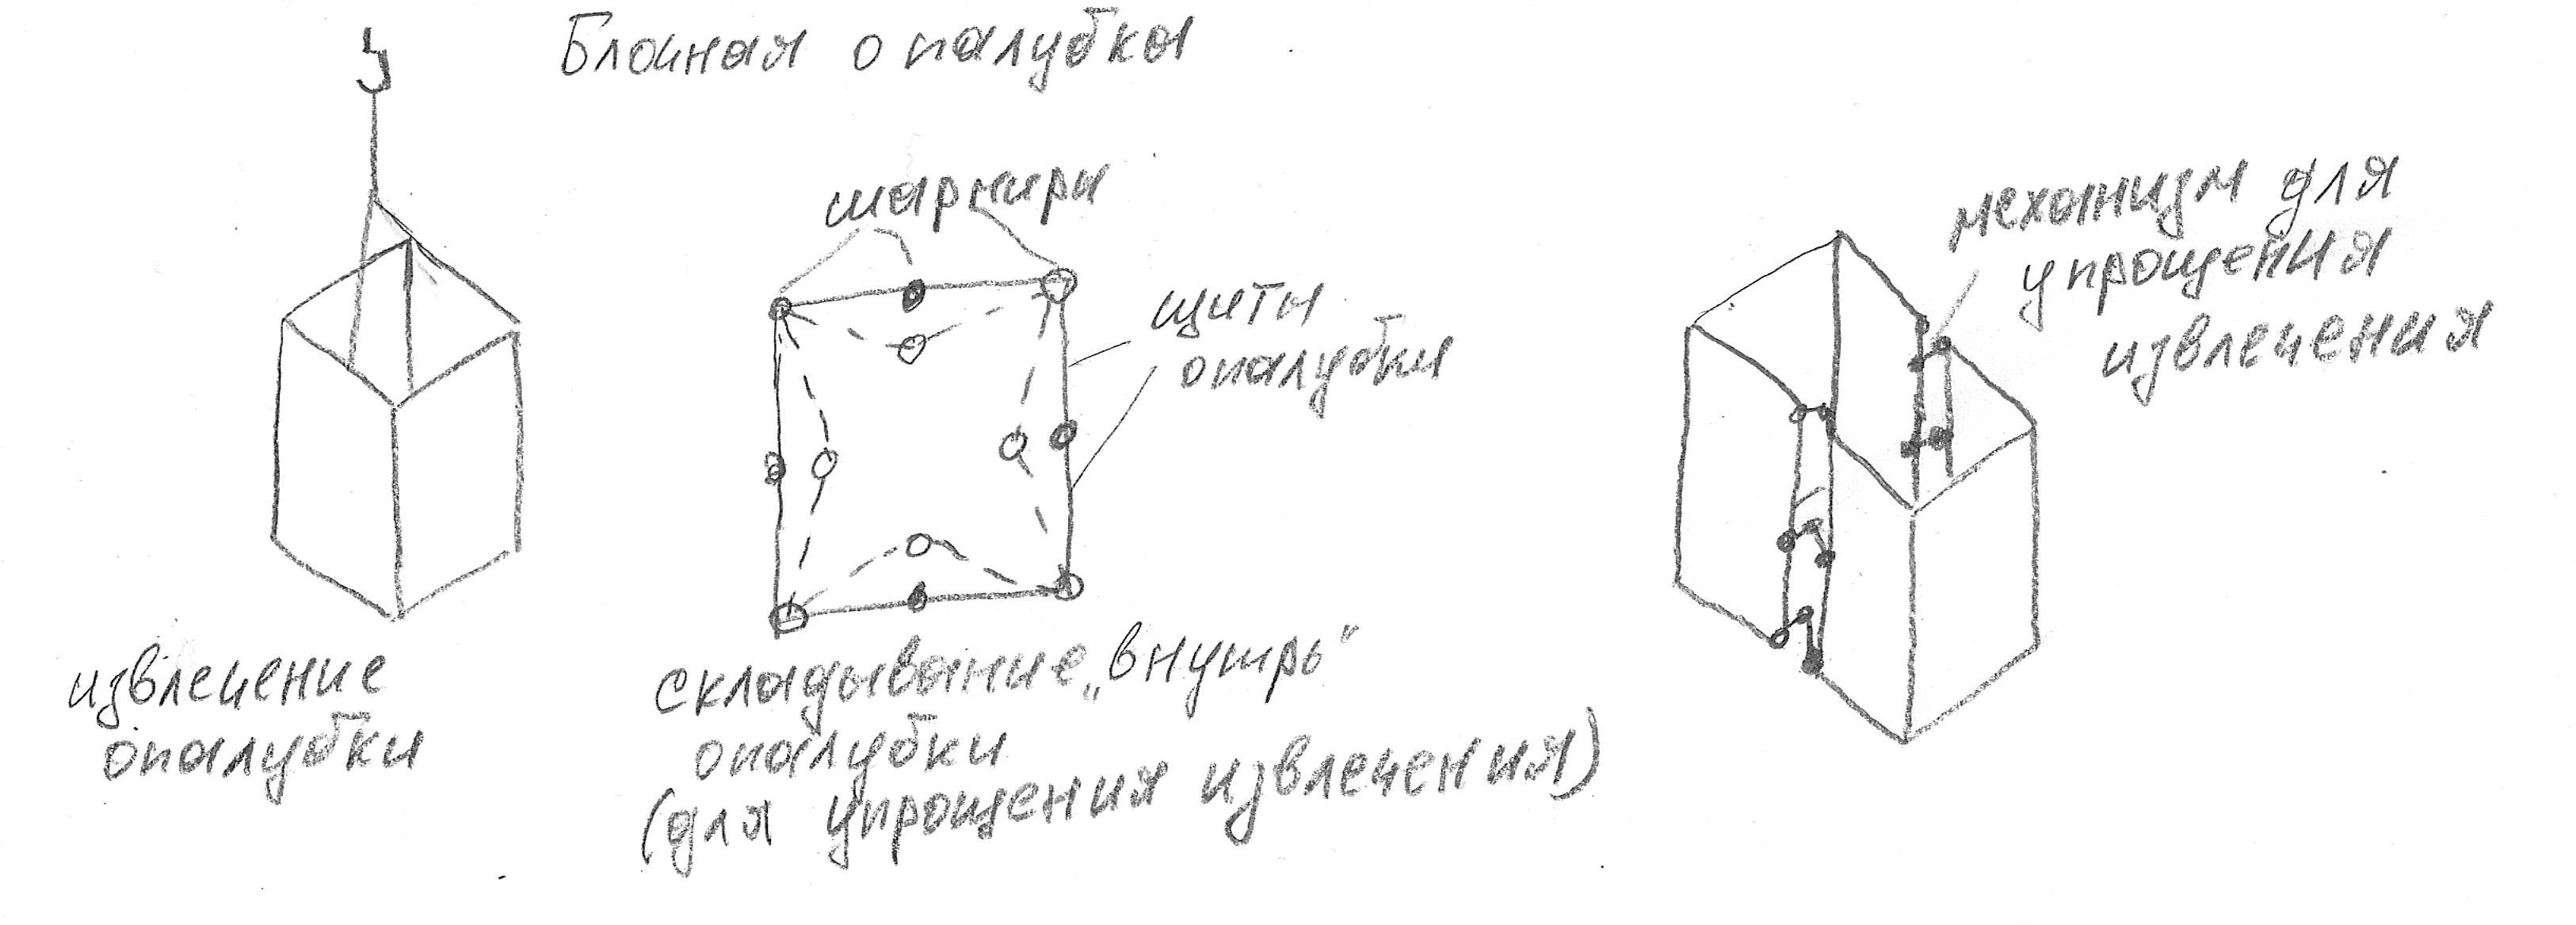 Блочная опалубка
шарниры
щиты
опалубки
механизм для
упрощения
извлечения
извлечение
опалубки
складывание „внутрь"
опалубки
(для упрощения извлечения)